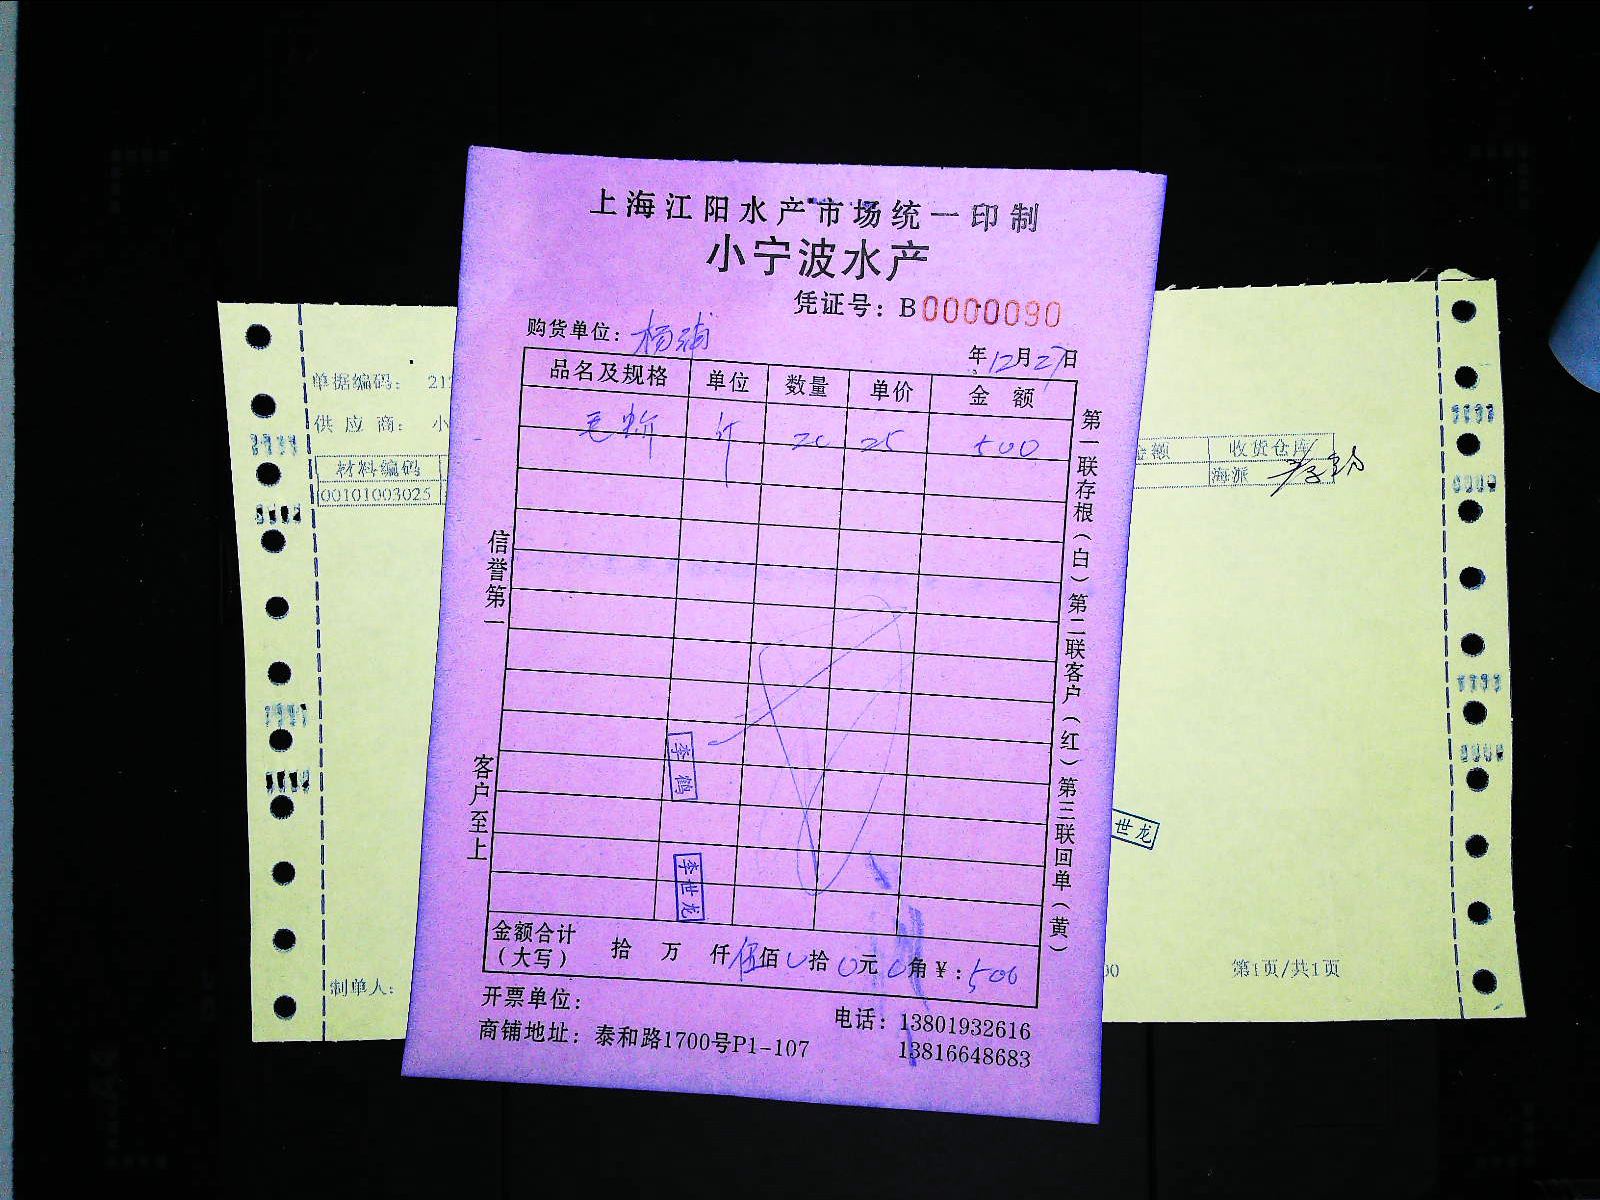 上海江阳水产市场统一印制
小宁波水产
凭证号：B0000090
购货单位：杨浦
年12月27日
品名及规格 单位 数量 单价 金额
毛蚶 斤 20 25 500
金额合计（大写） 拾 万 仟伍佰0拾0元0角￥：500
开票单位：
商铺地址：泰和路1700号P1-107
电话：13801932616
13816648683
信誉第一
客户至上
第一联存根（白）第二联客户（红）第三联回单（黄）
李鹤
李世龙
单据编码： 21
供应商： 小
材料编码
00101003025
制单人：
金额 收货仓库
海派
世龙
00
第1页/共1页